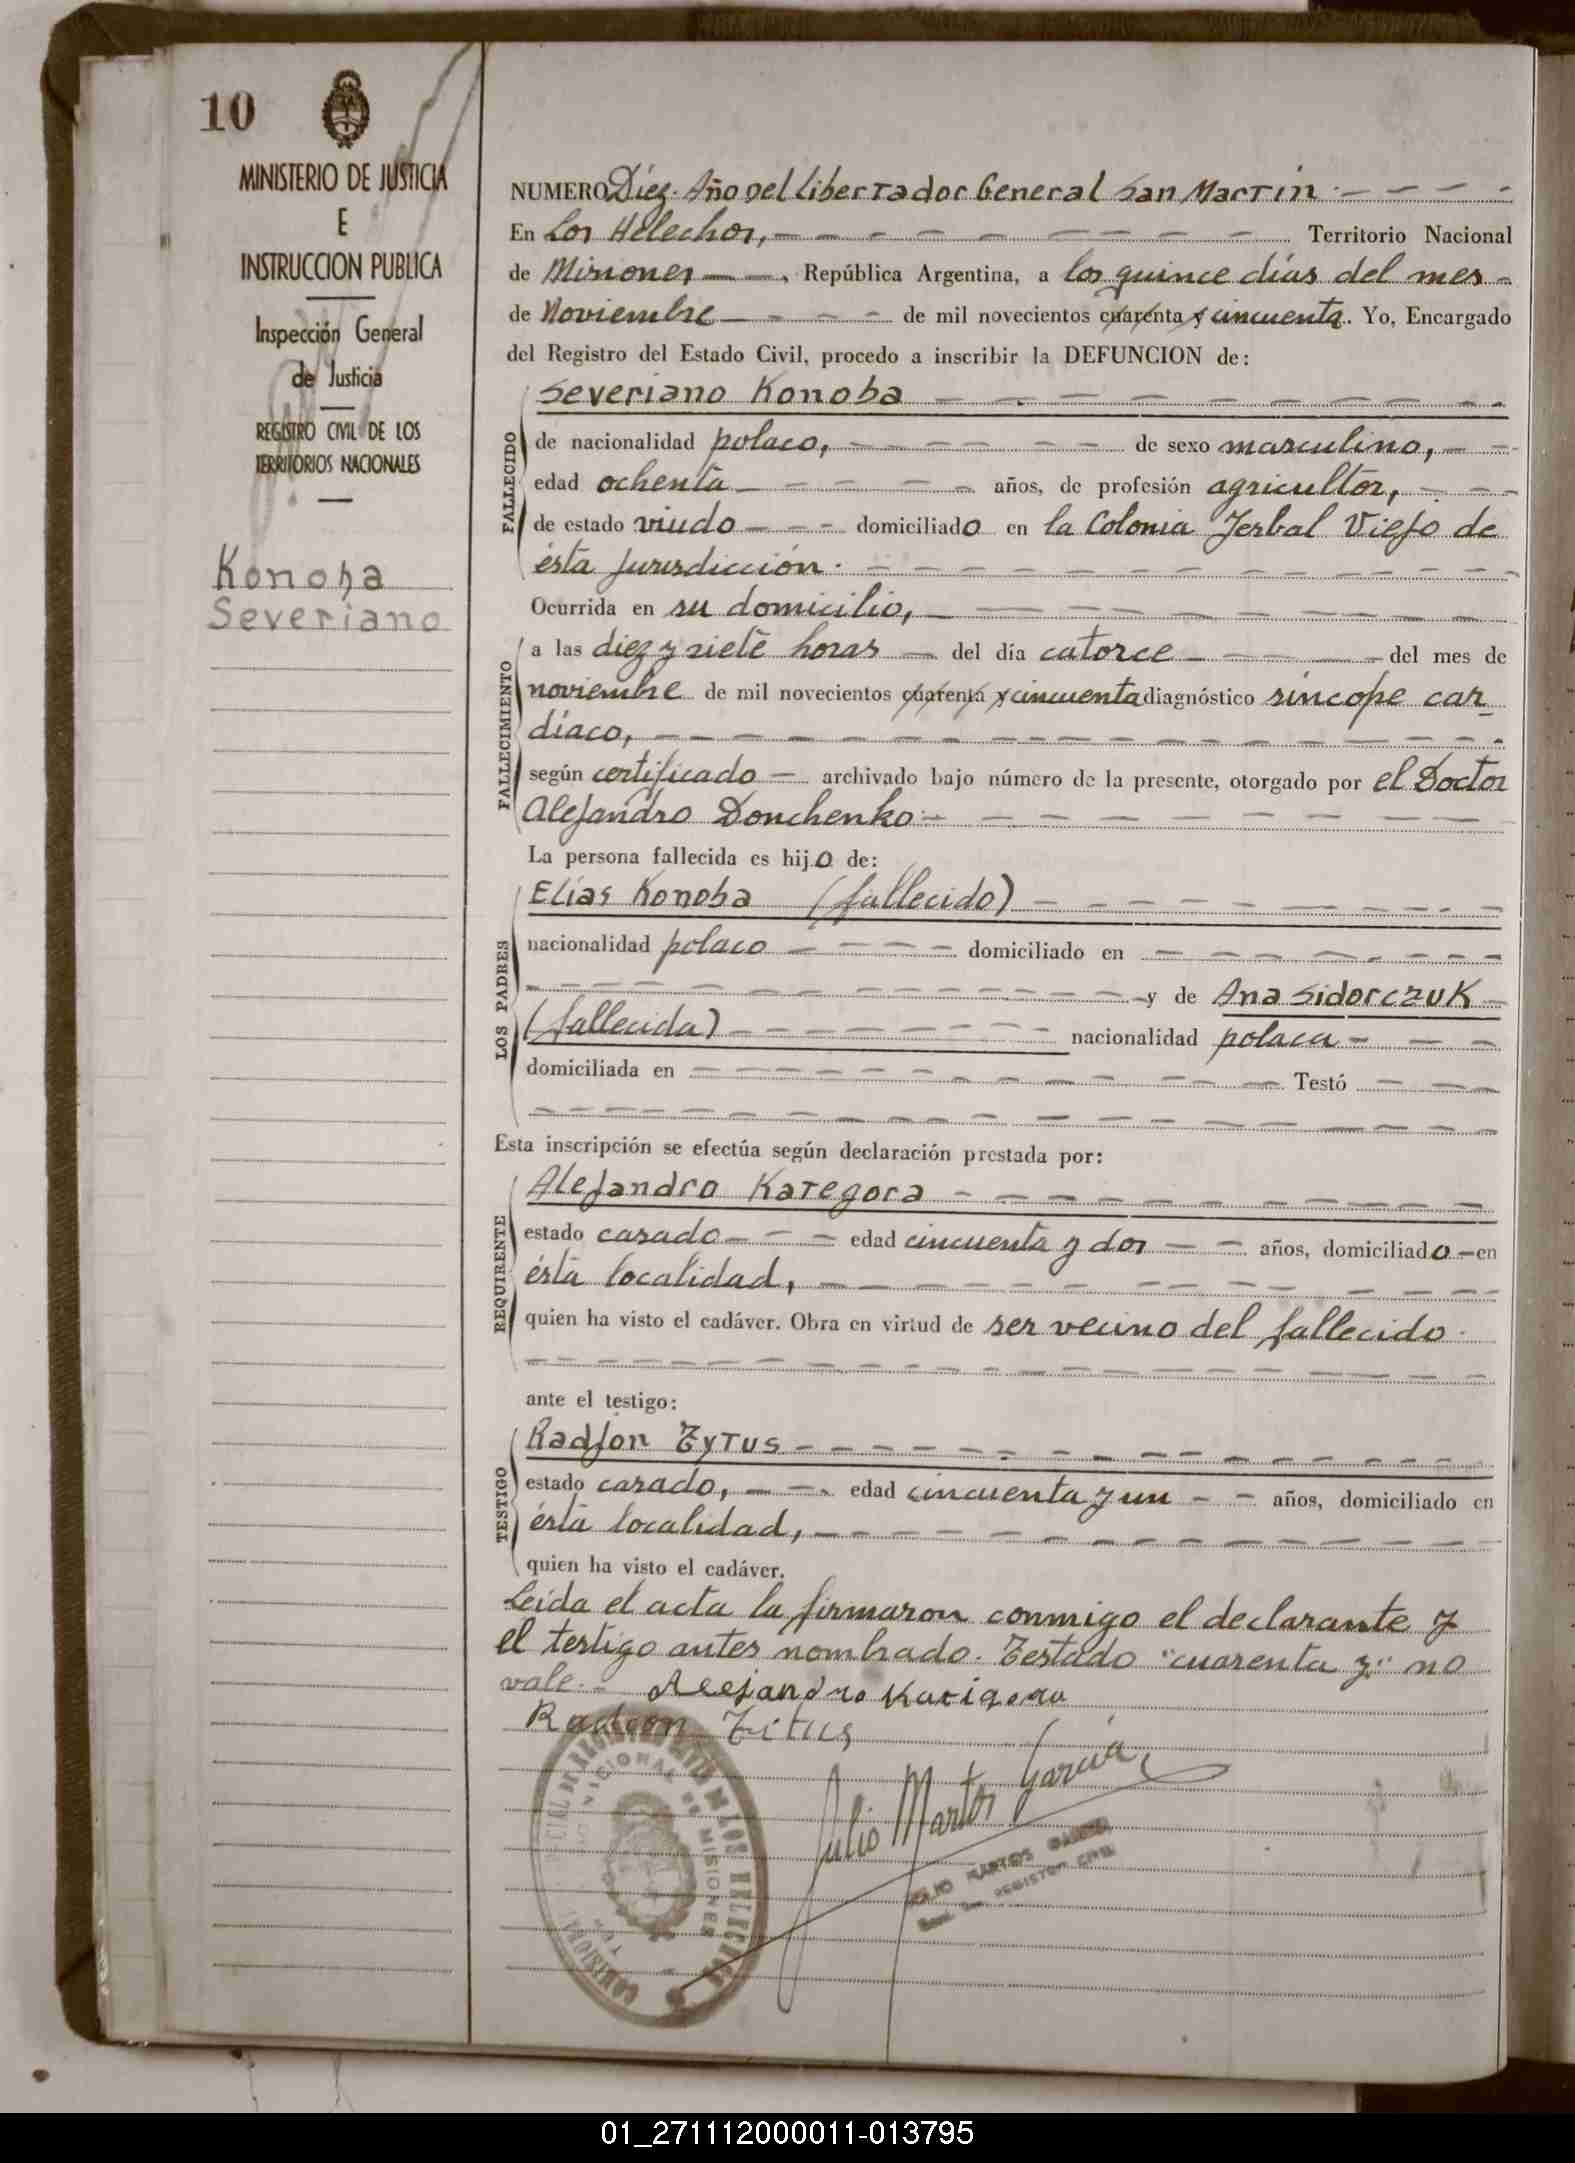 10
MINISTERIO DE JUSTICIA
E
INSTRUCCION PUBLICA
Inspección General
de Justicia
REGISTRO CIVIL DE LOS
TERRITORIOS NACIONALES
Konoba
Severiano
NUMERO Diez. Año Del Libertador General San Martin
En Los Helechos, Territorio Nacional
de Misiones, República Argentina, a los quince días del mes
de Noviembre de mil novecientos cuarenta y cincuenta. Yo, Encargado
del Registro del Estado Civil, procedo a inscribir la DEFUNCION de:
Severiano Konoba
FALLECIDO
de nacionalidad polaco, de sexo masculino,
edad ochenta años, de profesión agricultor,
de estado viudo domiciliado en la Colonia Yerbal Viejo de
ésta jurisdicción.
Ocurrida en su domicilio,
FALLECIMIENTO
a las diez y siete horas del día catorce del mes de
noviembre de mil novecientos cuarenta y cincuenta diagnóstico síncope car-
díaco,
según certificado archivado bajo número de la presente, otorgado por el Doctor
Alejandro Donchenko
La persona fallecida es hijo de:
LOS PADRES
Elias Konoba (fallecido)
nacionalidad polaco domiciliado en
y de Ana Sidorczuk
(fallecida) nacionalidad polaca
domiciliada en Testó
Esta inscripción se efectúa según declaración prestada por:
REQUIRENTE
Alejandro Karegora
estado casado edad cincuenta y dos años, domiciliado en
ésta localidad,
quien ha visto el cadáver. Obra en virtud de ser vecino del fallecido.
ante el testigo:
TESTIGO
Radjon Tytus
estado casado, edad cincuenta y un años, domiciliado en
ésta localidad,
quien ha visto el cadáver.
Leída el acta la firmaron conmigo el declarante y
el testigo antes nombrado. Testado "cuarenta y" no
vale. Alejandro
Titus
Julio Martos García
JULIO MARTOS GARCIA
REGISTRO CIVIL
01_271112000011-013795